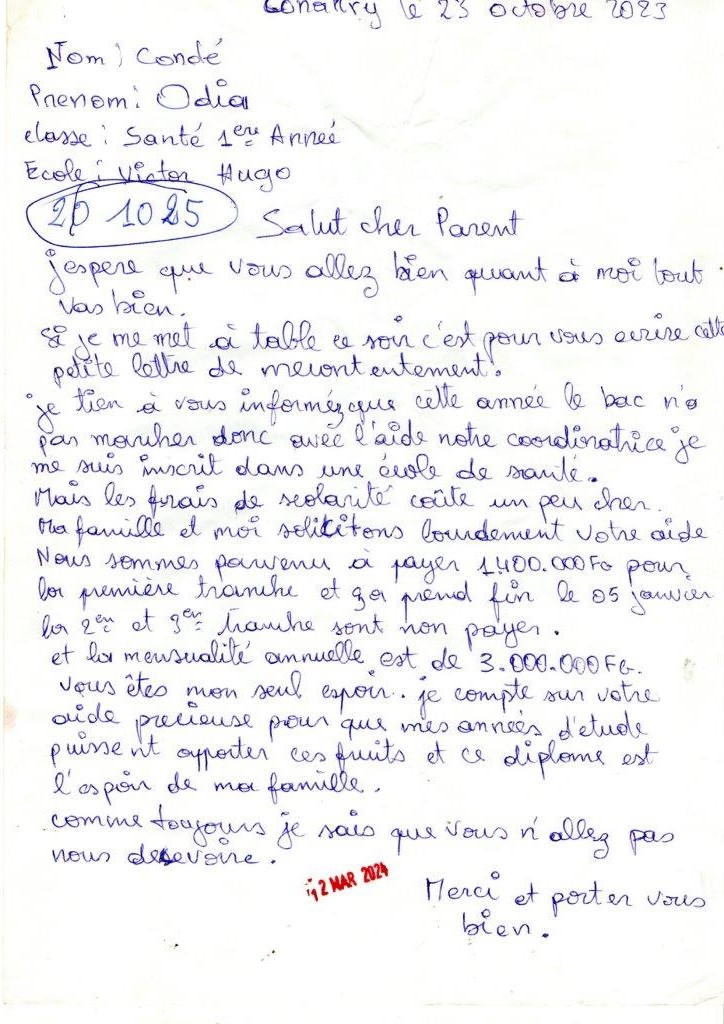 Conakry le 23 octobre 2023
Nom : Condé
Prenom : Odia
classe : Santé 1ere Anneé
Ecole : Victor Hugo
201025
Salut cher Parent
j'espere que vous allez bien quant à moi tout
vas bien.
Si je me met à table ce soir c'est pour vous ecrire cette
petite lettre de mecontentement.
je tien à vous informéz que cette année le bac n'a
pas marcher donc avec l'aide notre coordinatrice je
me suis inscrit dans une école de santé.
Mais les frais de scolarité coûte un peu cher.
Ma famille et moi solicitons lourdement votre aide
Nous sommes parvenu à payer 1.400.000FG pour
la première tranche et ça prend fin le 05 janvier
la 2er et 3er tranche sont non payer.
et la mensualité annuelle est de 3.000.000FG.
Vous êtes mon seul espoir. je compte sur votre
aide precieuse pour que mes anneés d'etude
puissent apporter ces fruits et ce diplome est
l'espoir de ma famille.
comme toujours je sais que vous n'allez pas
nous decevoire.
12 MAR 2024
Merci et porter vous
bien.